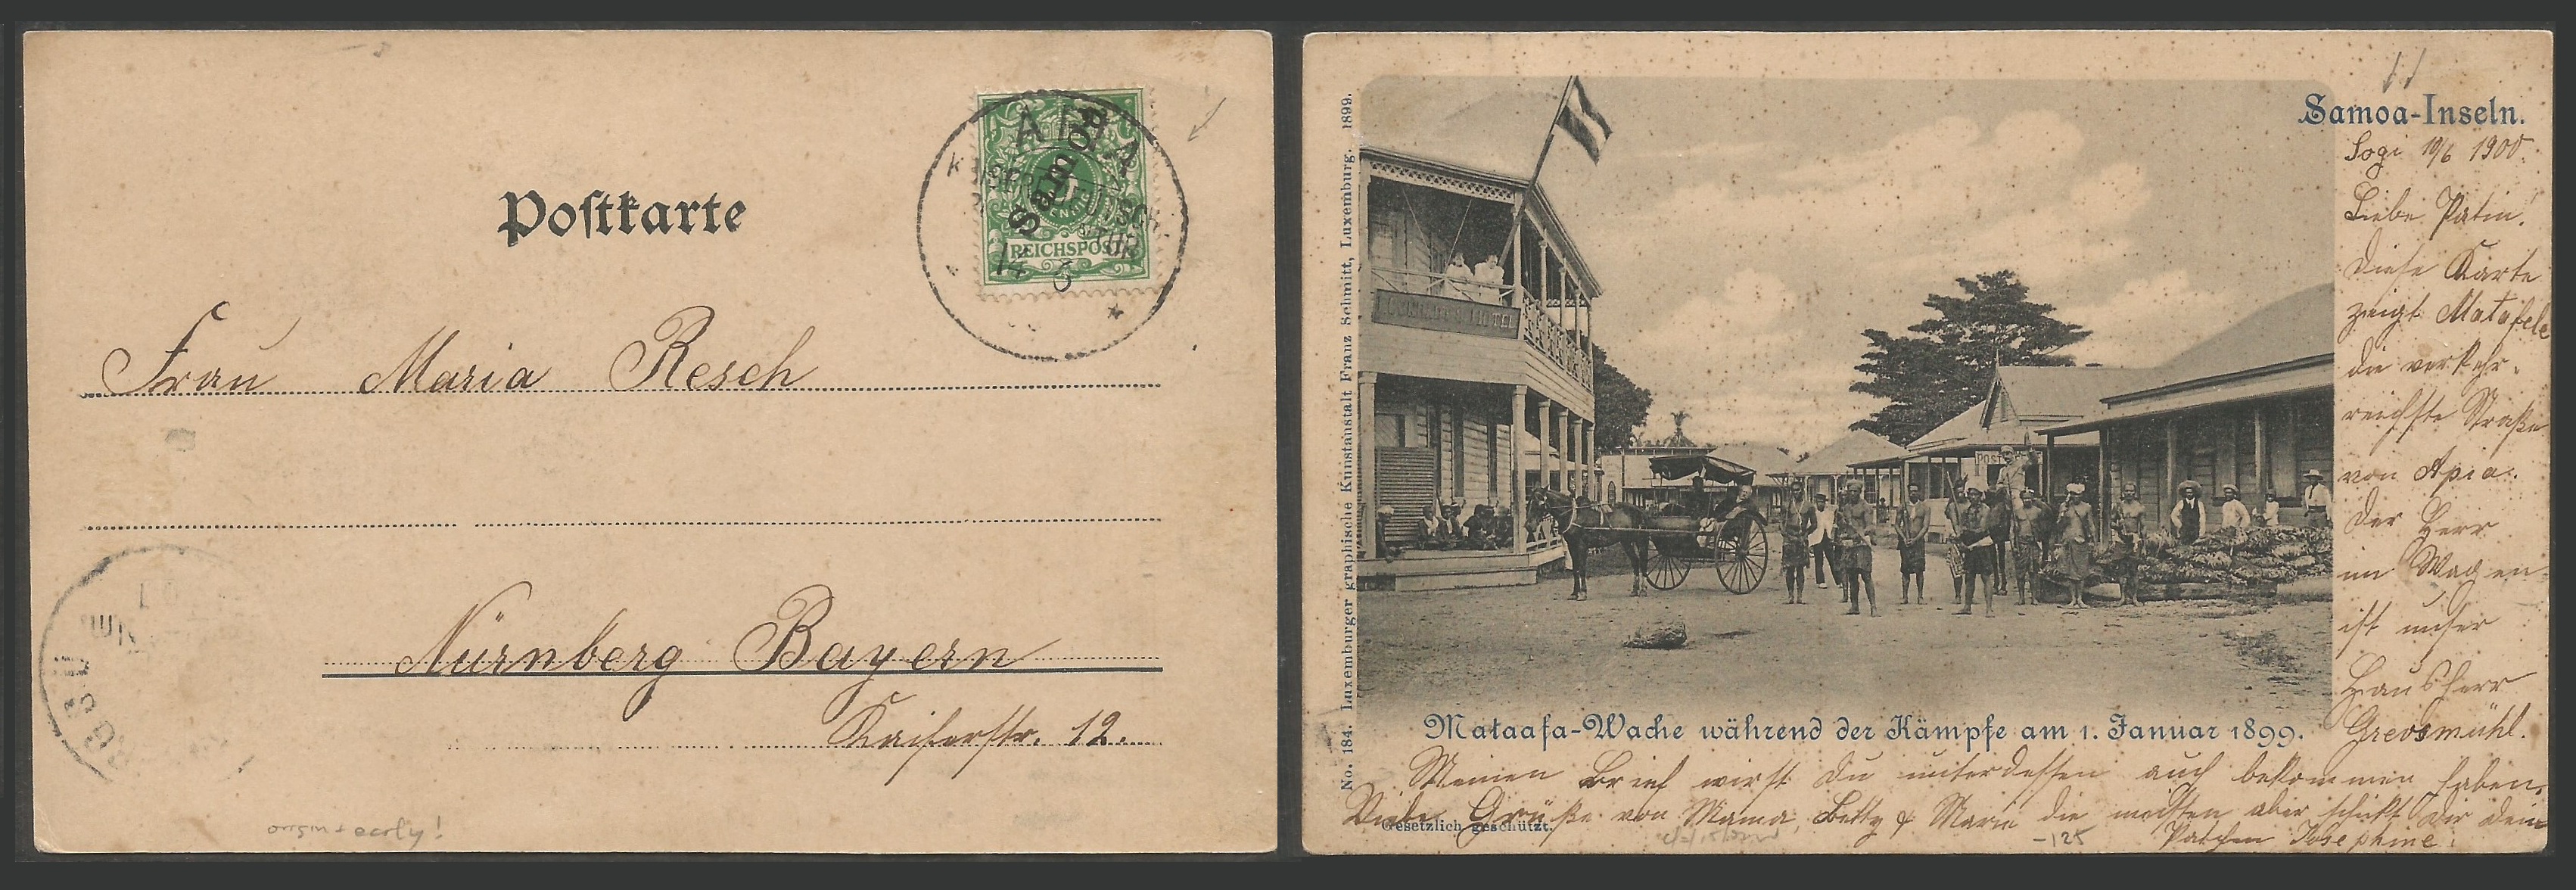 Postkarte
APIA
SAMOA
REICHSPOST
14 6
Frau Maria Resch
Nürnberg Bayern
Kaiserstr. 12.
origin + early!
Samoa-Inseln.
Sogi 10/6 1900.
Liebe Patin!
Diese Karte
zeigt Matafele
die verkehr-
reichste Straße
von Apia.
Der Herr
im Wagen
ist unser
Hausherr
Grevsmühl.
POST
Mataafa-Wache während der Kämpfe am 1. Januar 1899.
Meinen Brief wirst Du unterdessen auch bekommen haben.
Viele Grüße von Mama, Betty & Marie die meisten aber schickt Dir Dein
Patchen Josephine.
Gesetzlich geschützt.
-125
No. 184. Luxemburger graphische Kunstanstalt Franz Schmitt, Luxemburg. 1899.